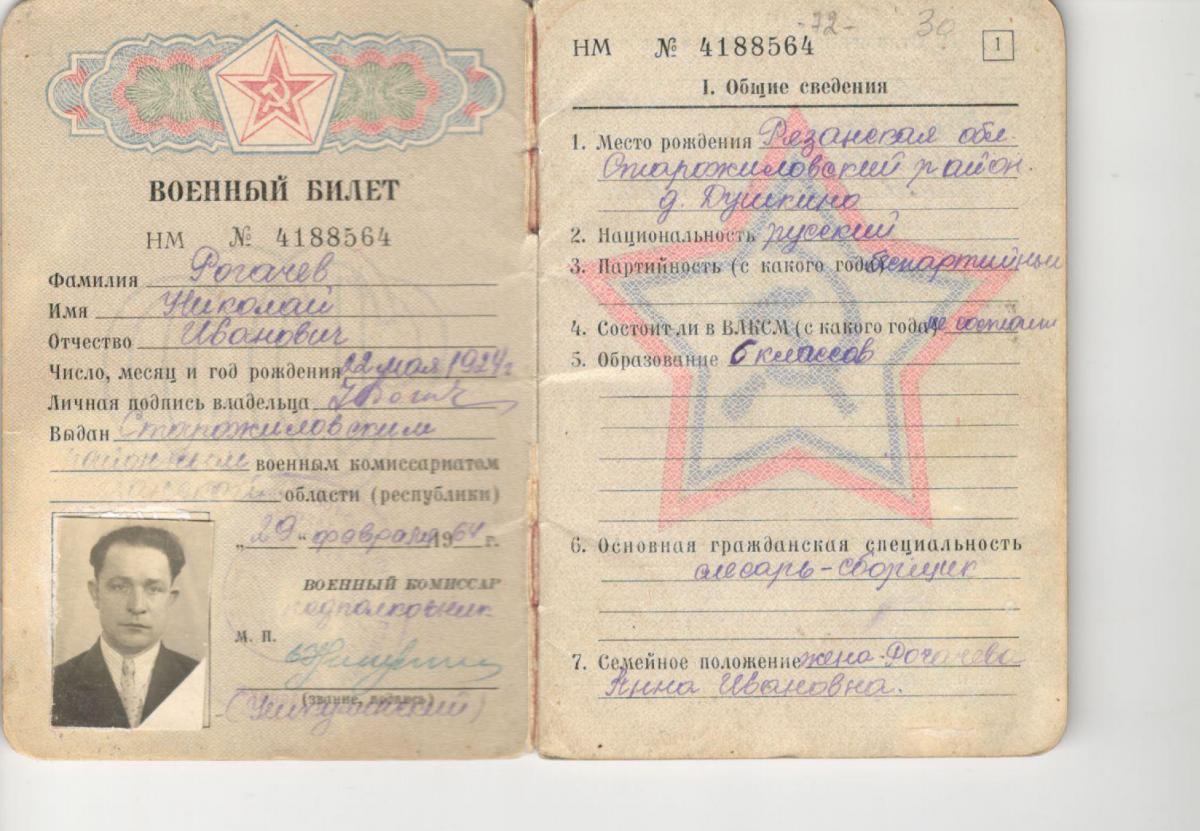 ВОЕННЫЙ БИЛЕТ
НМ № 4188564
Фамилия Рогачев
Имя Николай
Отчество Иванович
Число, месяц и год рождения 22 мая 1924 г
Личная подпись владельца
Выдан Старожиловским
районным военным комиссариатом
области (республики)
„29“ февраля 1964 г.
ВОЕННЫЙ КОМИССАР
подполковник
М. П.
(звание, подпись)
-72- 30
НМ № 4188564 1
I. Общие сведения
1. Место рождения Рязанская обл.
Старожиловский район.
д. Душкино
2. Национальность русский
3. Партийность (с какого года) беспартийный
4. Состоит ли в ВЛКСМ (с какого года) не состоит
5. Образование 6 классов
6. Основная гражданская специальность
слесарь-сборщик
7. Семейное положение жена-Рогачева
Анна Ивановна.